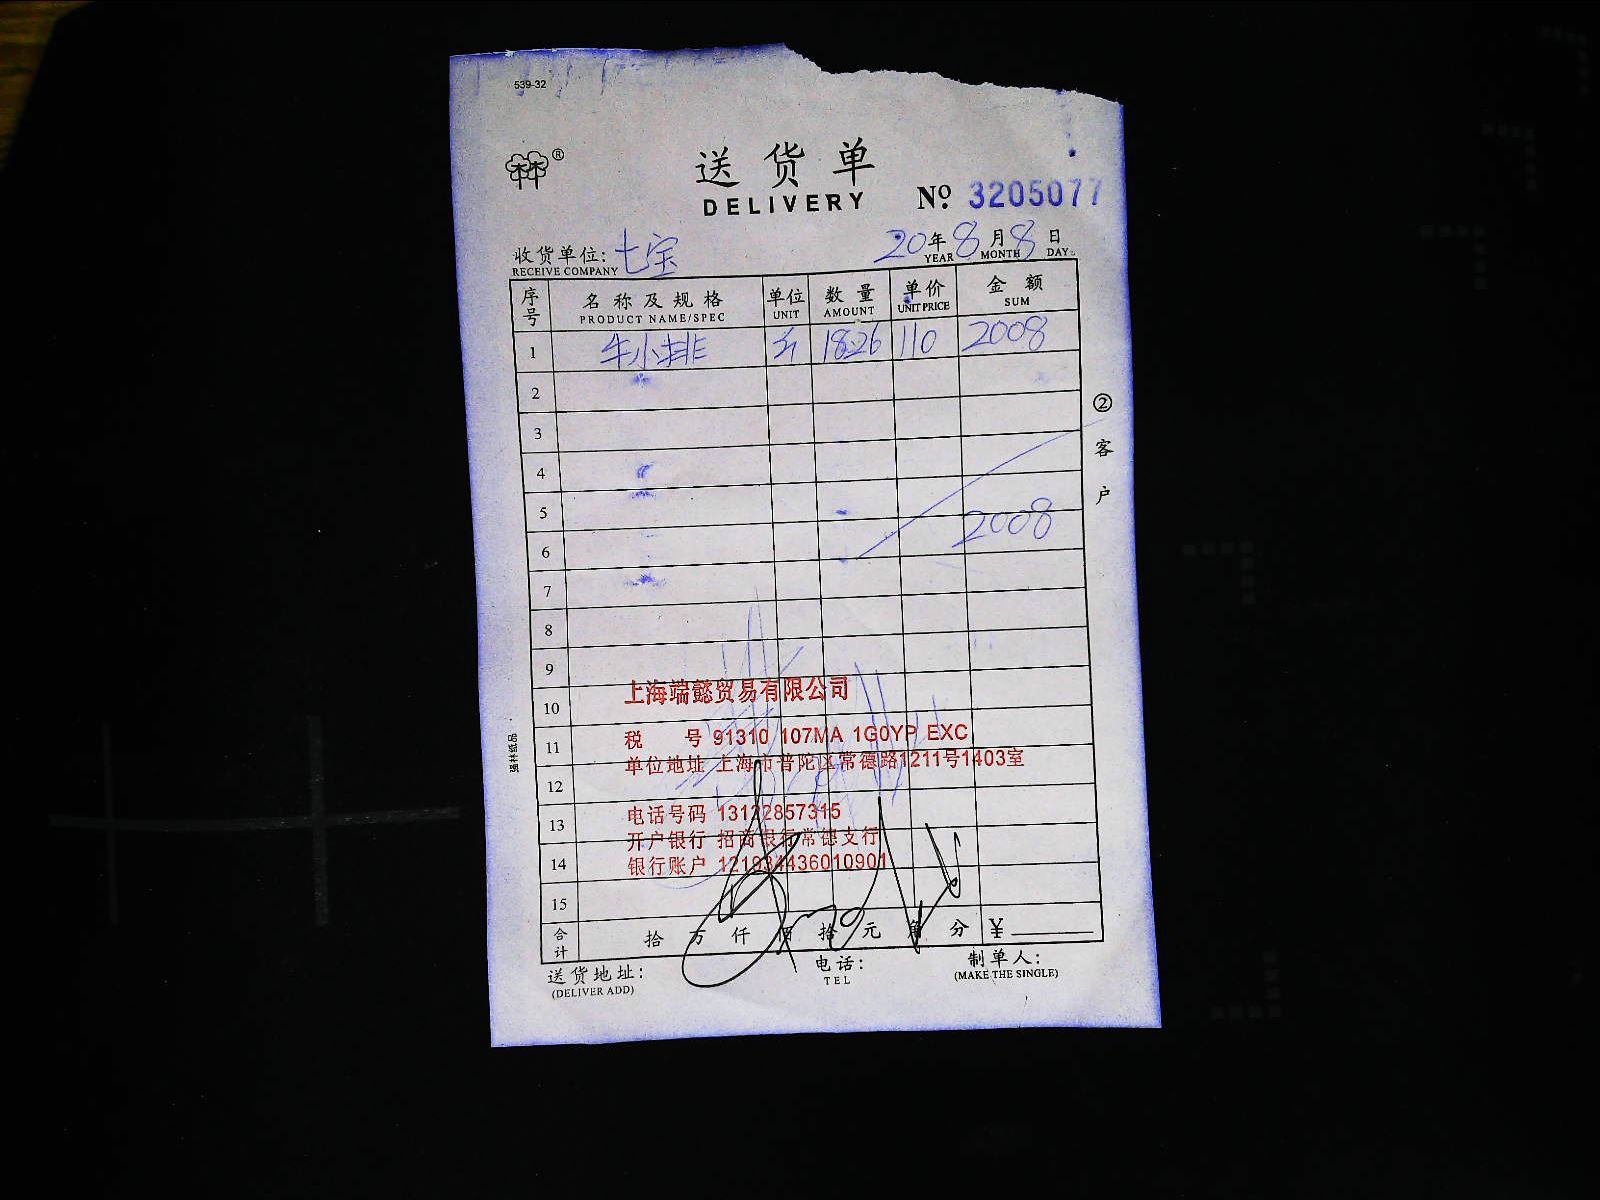 539-32
®
送货单
DELIVERY № 3205077
收货单位: 七宝 20年8月8日
RECEIVE COMPANY YEAR MONTH DAY
序号 名称及规格 单位 数量 单价 金额
PRODUCT NAME/SPEC UNIT AMOUNT UNIT PRICE SUM
1 牛小排 斤 18.26 110 2008
2
3
4
5
2008
6
7
8
9
10
11
12
13
14
15
上海端懿贸易有限公司
税 号 91310 107MA 1G0YP EXC
单位地址 上海市普陀区常德路1211号1403室
电话号码 13122857315
开户银行 招商银行常德支行
银行账户 121934436010901
合计 拾 万 仟 佰 拾 元 角 分 ¥
送货地址: 电话: 制单人:
(DELIVER ADD) TEL (MAKE THE SINGLE)
② 客户